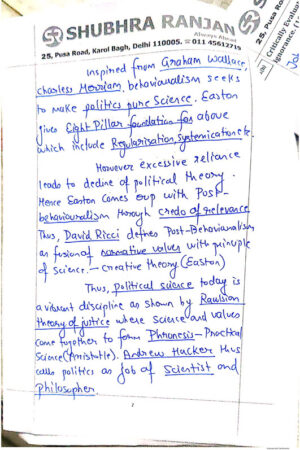 SR SHUBHRA RANJAN
Always Ahead
25, Pusa Road, Karol Bagh, Delhi 110005. ☎ 011 45612719
25, Pusa Ro
Critically Evalua
ignorance.
Inspired from Graham Wallace,
charles Merriam, behaviouralism seeks
to make politics pure Science. Easton
gives Eight Pillar foundation for above
which include Regularisation, Systemication etc.
However excessive reliance
leads to decline of political theory.
Hence Easton comes oup with Post-
behaviouralism through credo of relevance
Thus, David Ricci defines Post-Behaviouralism
as fusion of normative values with principle
of Science. – Creative theory (Easton)
Thus, political science today is
a vibrant discipline as shown by Rawlsian
theory of justice where Science and values
come together to form Phronesis – Practical
Science (Aristotle). Andrew Hacker thus
calls politics as job of Scientist and
Philosopher.